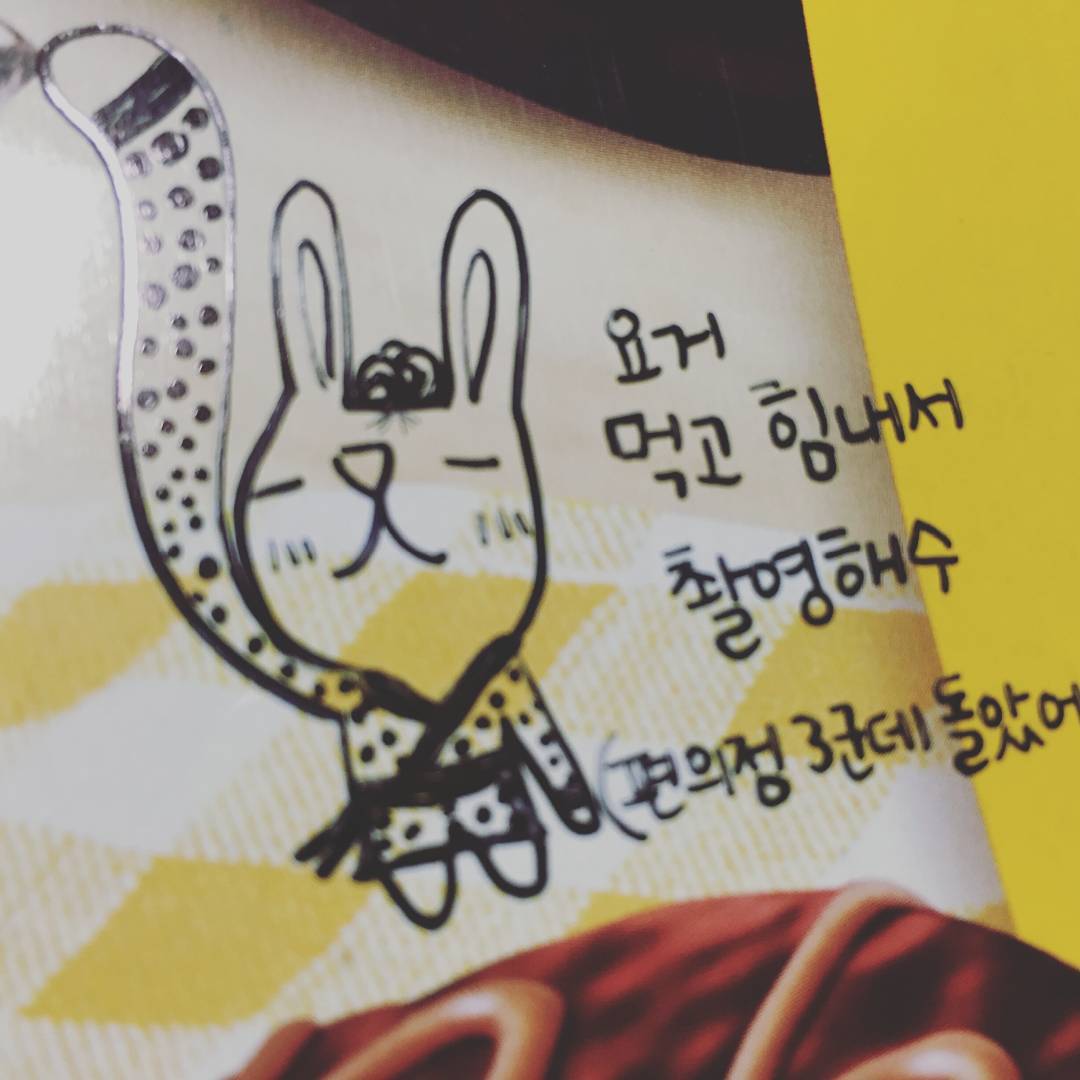 요거
먹고 힘내서
촬영해수
(편의정 3군데 돌았어